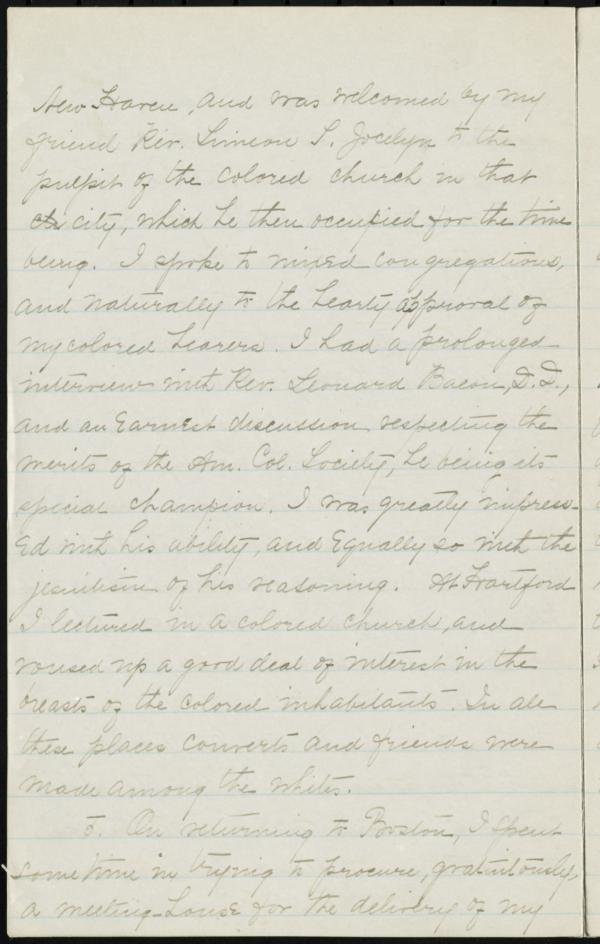 New Haven, and was welcomed by my
friend Rev. Simeon S. Jocelyn to the
pulpit of the colored church in that
city, which he then occupied for the time
being. I spoke to mixed congregations,
and naturally to the hearty approval of
my colored hearers. I had a prolonged
interview with Rev. Leonard Bacon, D. D.,
and an earnest discussion respecting the
merits of the Am. Col. Society, he being its
special champion. I was greatly impress-
ed with his ability, and equally so with the
jesuitism of his reasoning. At Hartford
I lectured in a colored church, and
roused up a good deal of interest in the
breasts of the colored inhabitants. In all
these places converts and friends were
made among the whites.
5. On returning to Boston, I spent
some time in trying to procure, gratuitously,
a meeting-house for the delivery of my